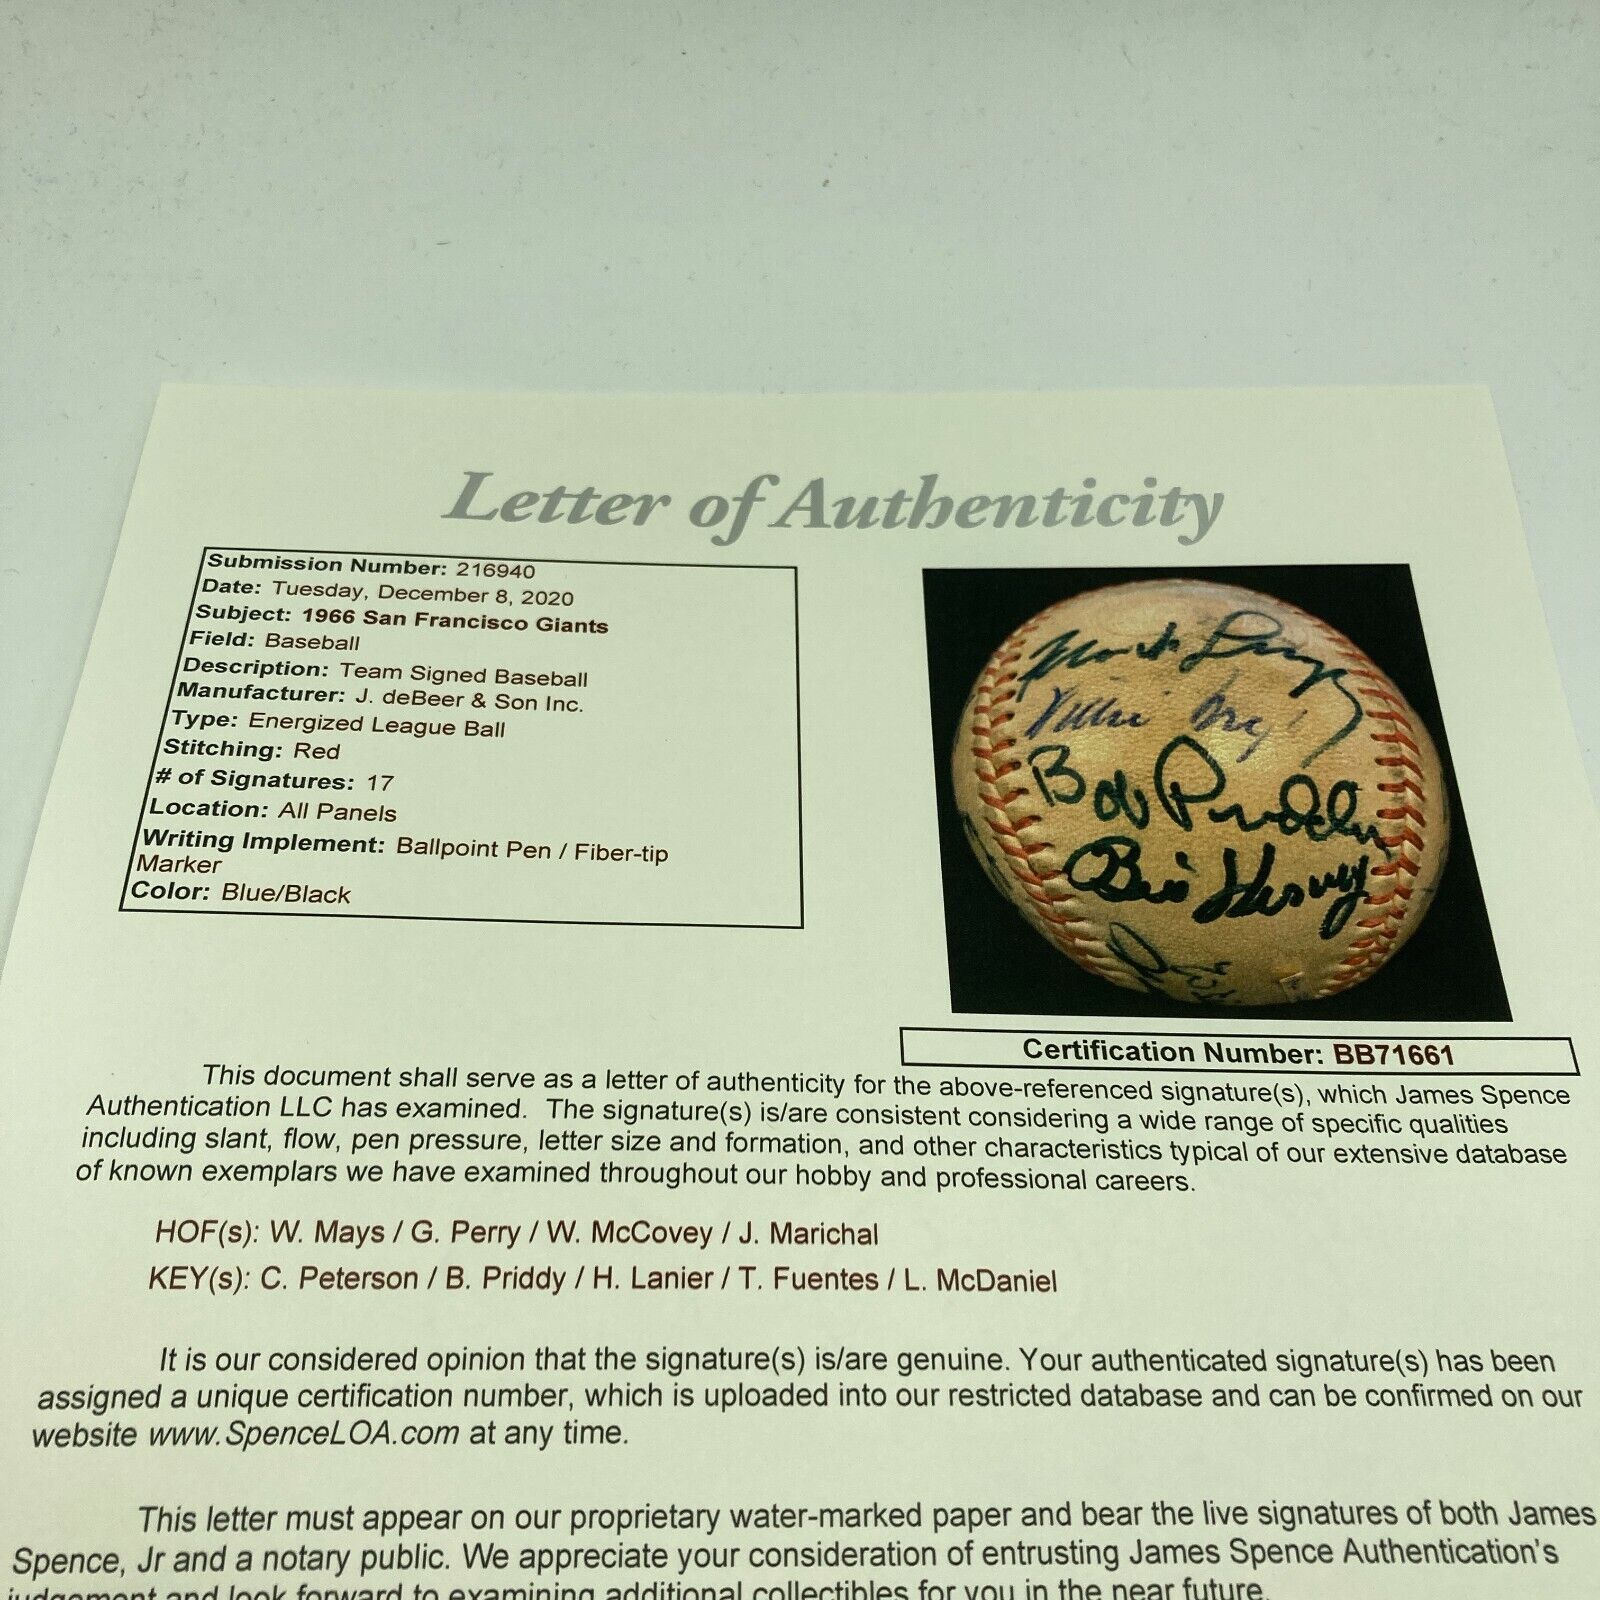 Letter of Authenticity
Submission Number: 216940
Date: Tuesday, December 8, 2020
Subject: 1966 San Francisco Giants
Field: Baseball
Description: Team Signed Baseball
Manufacturer: J. deBeer & Son Inc.
Type: Energized League Ball
Stitching: Red
# of Signatures: 17
Location: All Panels
Writing Implement: Ballpoint Pen / Fiber-tip
Marker
Color: Blue/Black
Willie Mays
Bob Priddy
Certification Number: BB71661
This document shall serve as a letter of authenticity for the above-referenced signature(s), which James Spence
Authentication LLC has examined. The signature(s) is/are consistent considering a wide range of specific qualities
including slant, flow, pen pressure, letter size and formation, and other characteristics typical of our extensive database
of known exemplars we have examined throughout our hobby and professional careers.
HOF(s): W. Mays / G. Perry / W. McCovey / J. Marichal
KEY(s): C. Peterson / B. Priddy / H. Lanier / T. Fuentes / L. McDaniel
It is our considered opinion that the signature(s) is/are genuine. Your authenticated signature(s) has been
assigned a unique certification number, which is uploaded into our restricted database and can be confirmed on our
website www.SpenceLOA.com at any time.
This letter must appear on our proprietary water-marked paper and bear the live signatures of both James
Spence, Jr and a notary public. We appreciate your consideration of entrusting James Spence Authentication's
judgement and look forward to examining additional collectibles for you in the near future.